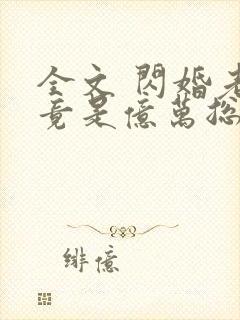 全文 閃婚老
竟是億萬總
緋億